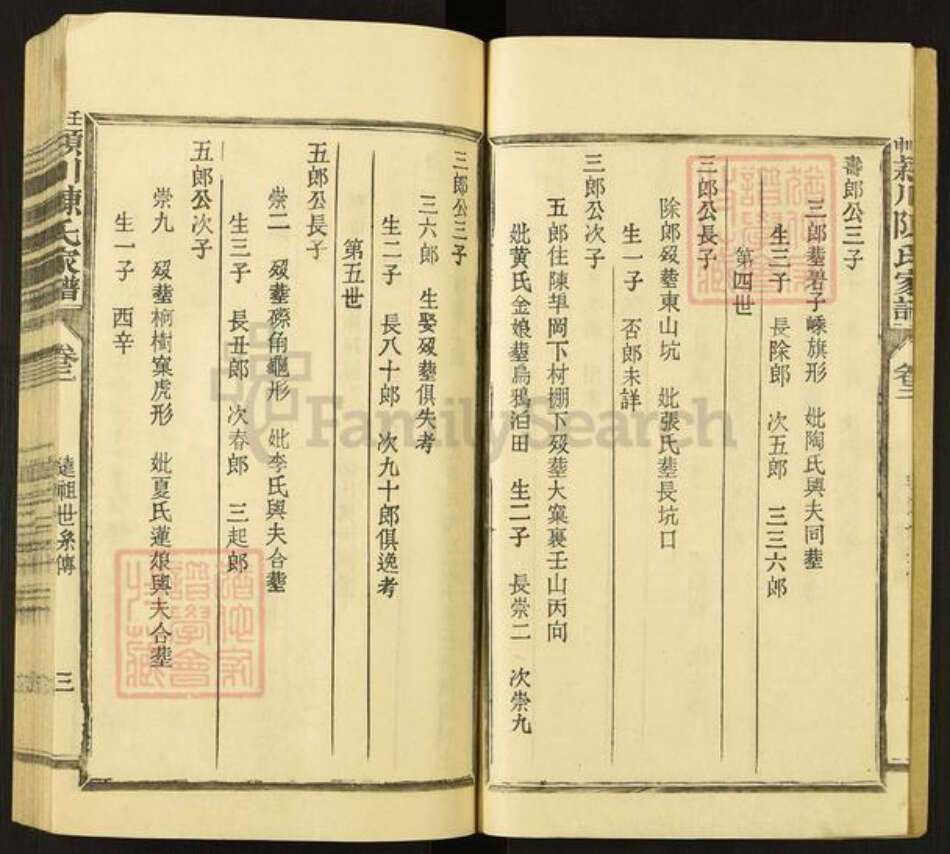 壽郎公三子
三郎塟碧子嵊旗形　妣陶氏與夫同塟
生三子　長除郎　次五郎　三三六郎
第四世
三郎公長子
除郎歿塟東山坑　妣張氏塟長坑口
生一子　否郎未詳
三郎公次子
五郎住陳㘵岡下材棚下歿塟大窠裏壬山丙向
妣黄氏金娘塟烏鴉泊田　生二子　長崇二　次崇九
三郎公三子
三六郎　生娶歿塟俱失考
生二子　長八十郎　次九十郎俱逸考
第五世
五郎公長子
崇二　歿塟磜角龜形　妣李氏與夫合塟
生三子　長丑郎　次春郎　三起郎
五郎公次子
崇九　歿塟桐樹窠虎形　妣夏氏蓮娘與夫合塟
生一子　酉辛
潁川陳氏家譜
卷三
達祖世系傳
三
FamilySearch